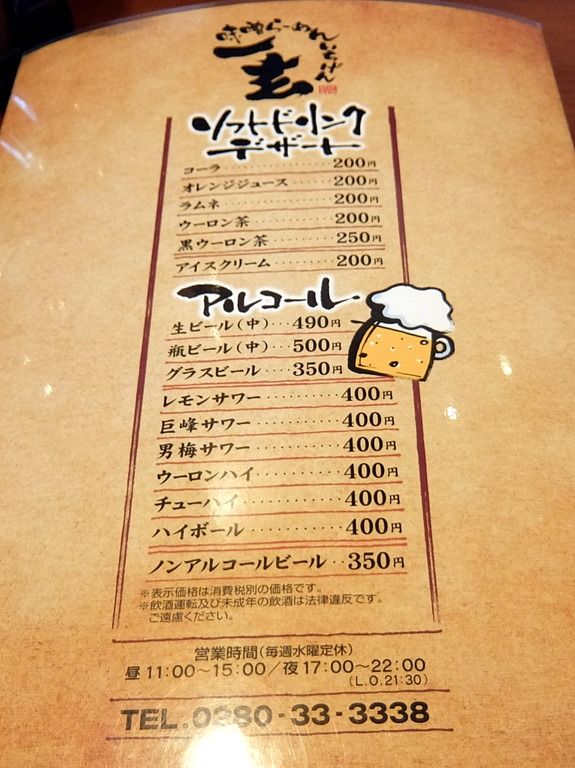 味噌らーめん いちげん
一玄
ソフトドリンク
デザート
コーラ‥‥‥‥‥‥200円
オレンジジュース‥‥‥200円
ラムネ‥‥‥‥‥‥200円
ウーロン茶‥‥‥‥‥200円
黒ウーロン茶‥‥‥‥250円
アイスクリーム‥‥‥‥200円
アルコール
生ビール(中)‥490円
瓶ビール(中)‥500円
グラスビール‥350円
レモンサワー‥‥‥‥400円
巨峰サワー‥‥‥‥‥400円
男梅サワー‥‥‥‥‥400円
ウーロンハイ‥‥‥‥400円
チューハイ‥‥‥‥‥400円
ハイボール‥‥‥‥‥400円
ノンアルコールビール‥350円
※表示価格は消費税別の価格です。
※飲酒運転及び未成年の飲酒は法律違反です。
ご遠慮ください。
営業時間(毎週水曜定休)
昼11:00～15:00／夜17:00～22:00
(L.O.21:30)
TEL.0280-33-3338